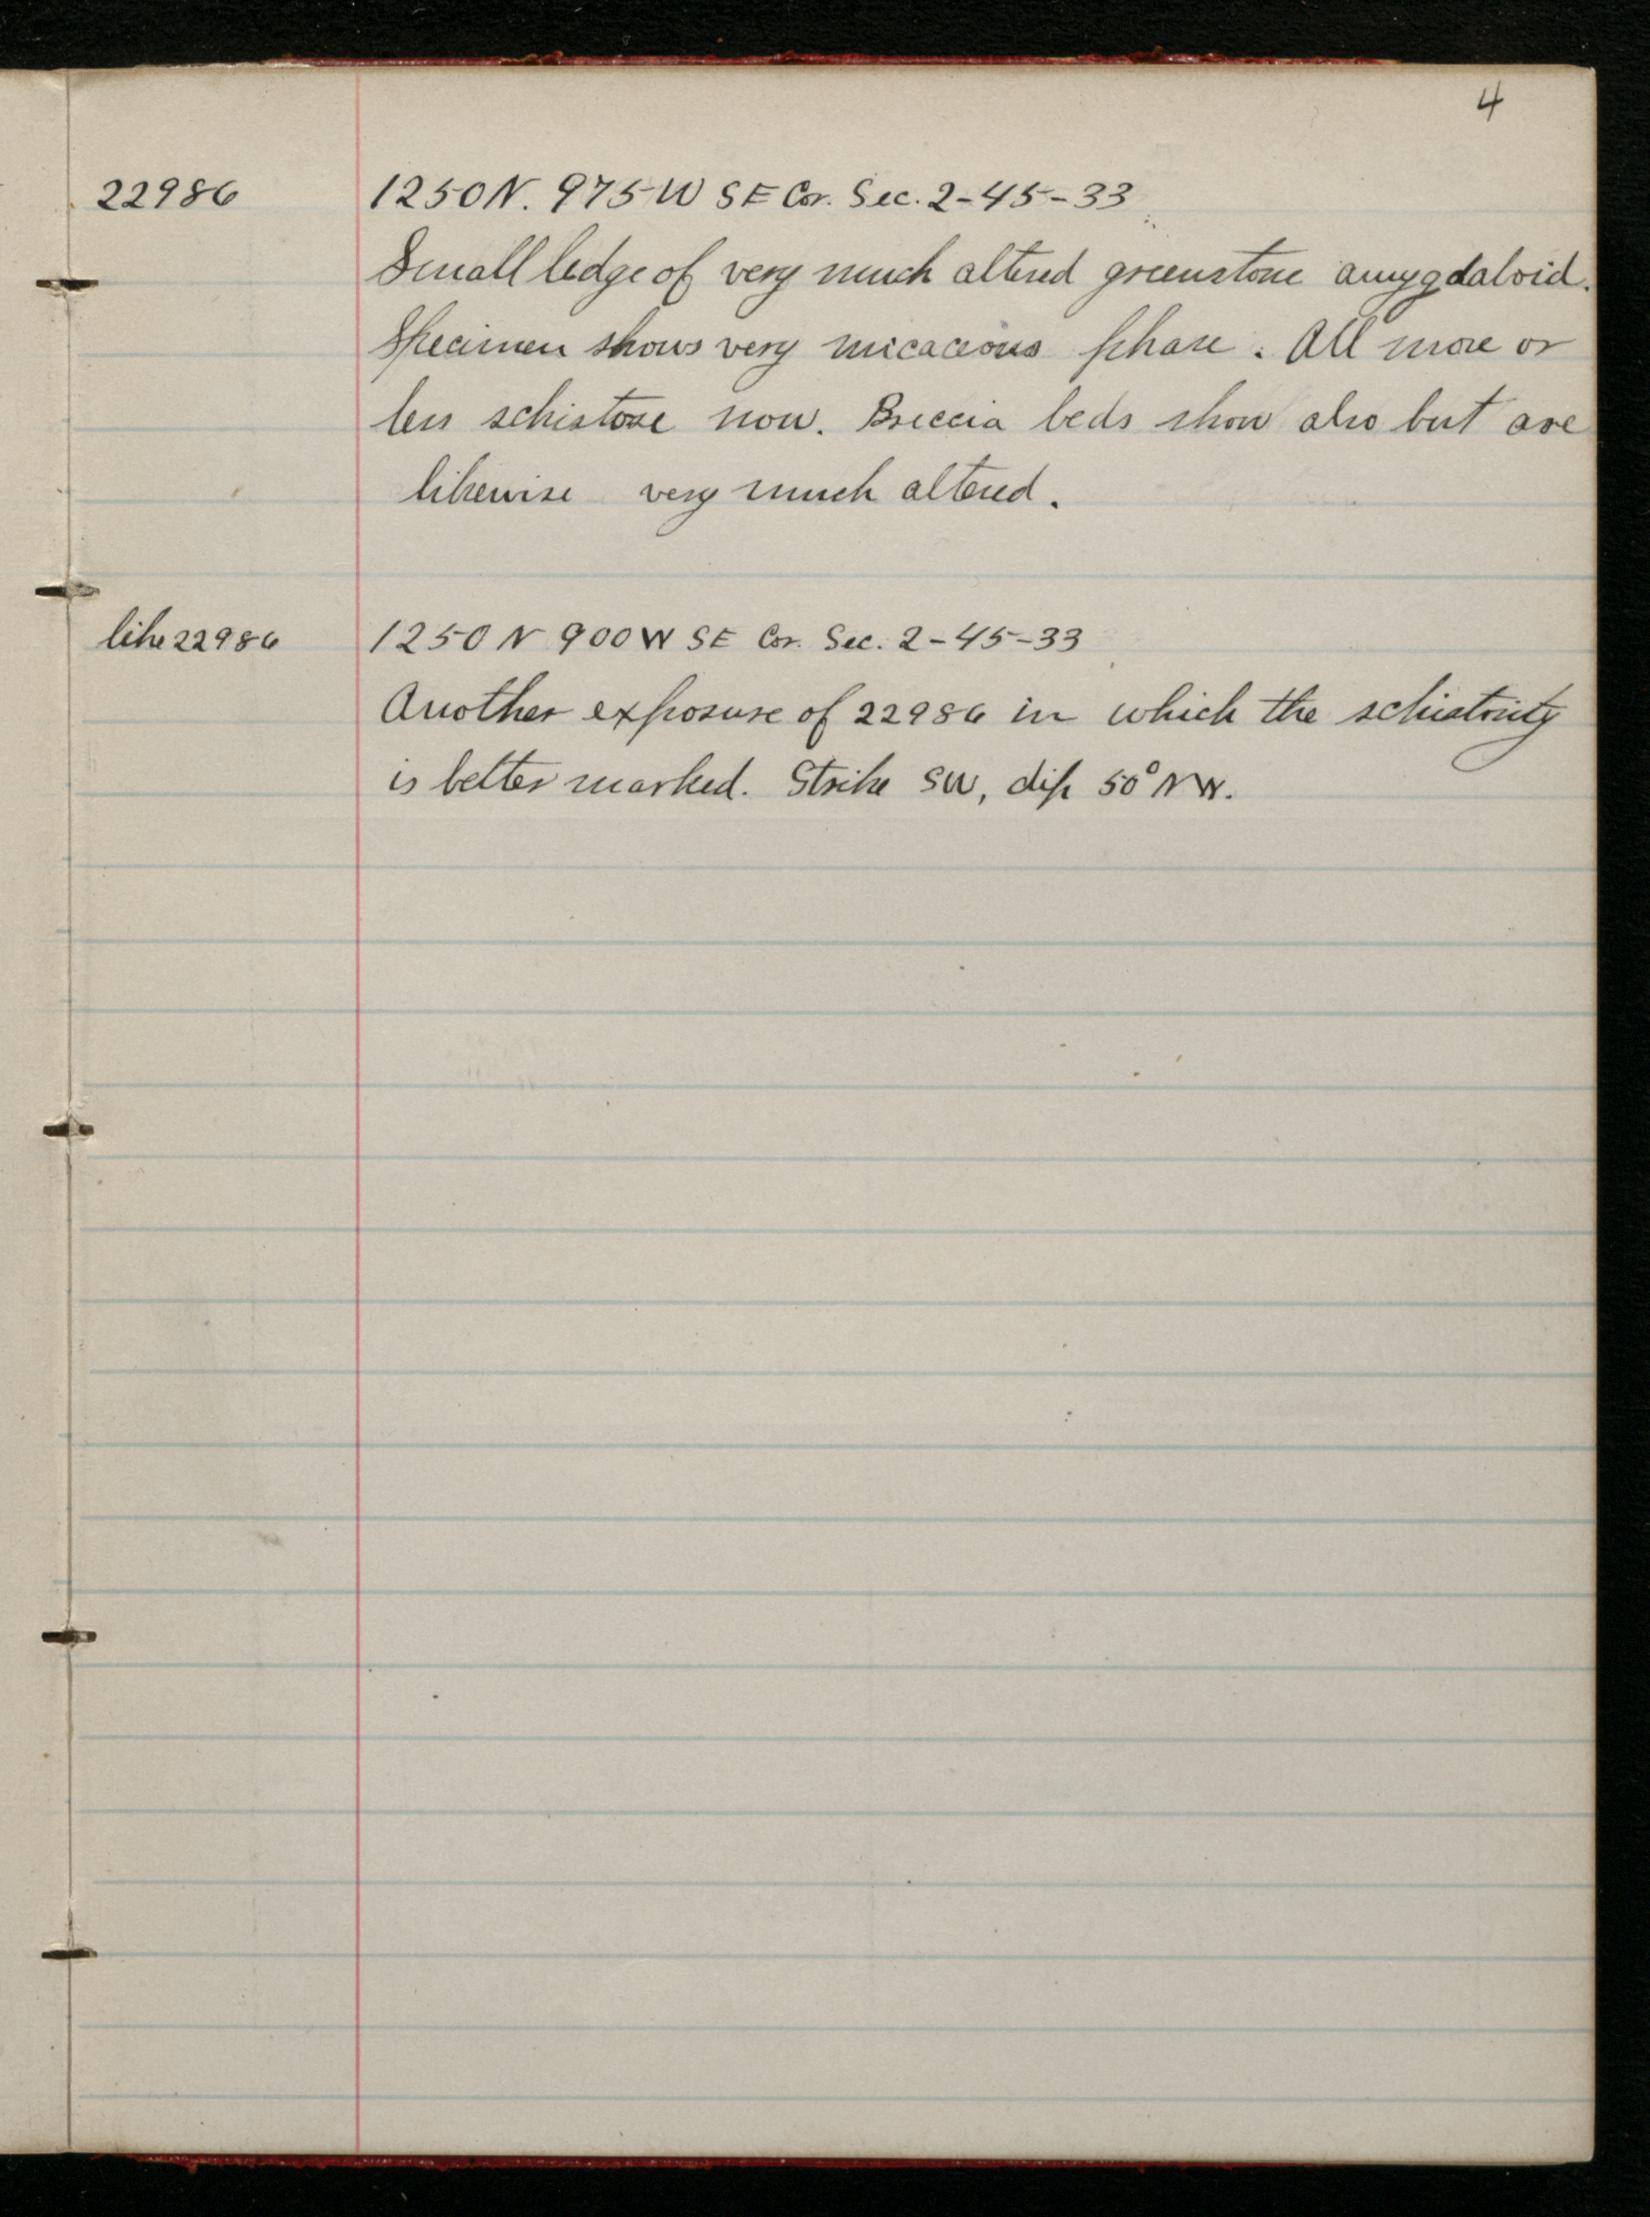 4
22986 1250N. 975W SE Cor. Sec. 2-45-33
Small ledge of very much altered greenstone amygdaloid.
Specimen shows very micaceous phase. All more or
less schistose now. Breccia beds show also but are
likewise very much altered.
like 22986 1250 N 900 W SE Cor. Sec. 2-45-33
Another exposure of 22986 in which the schistosity
is better marked. Strike SW, dip 50° NW.